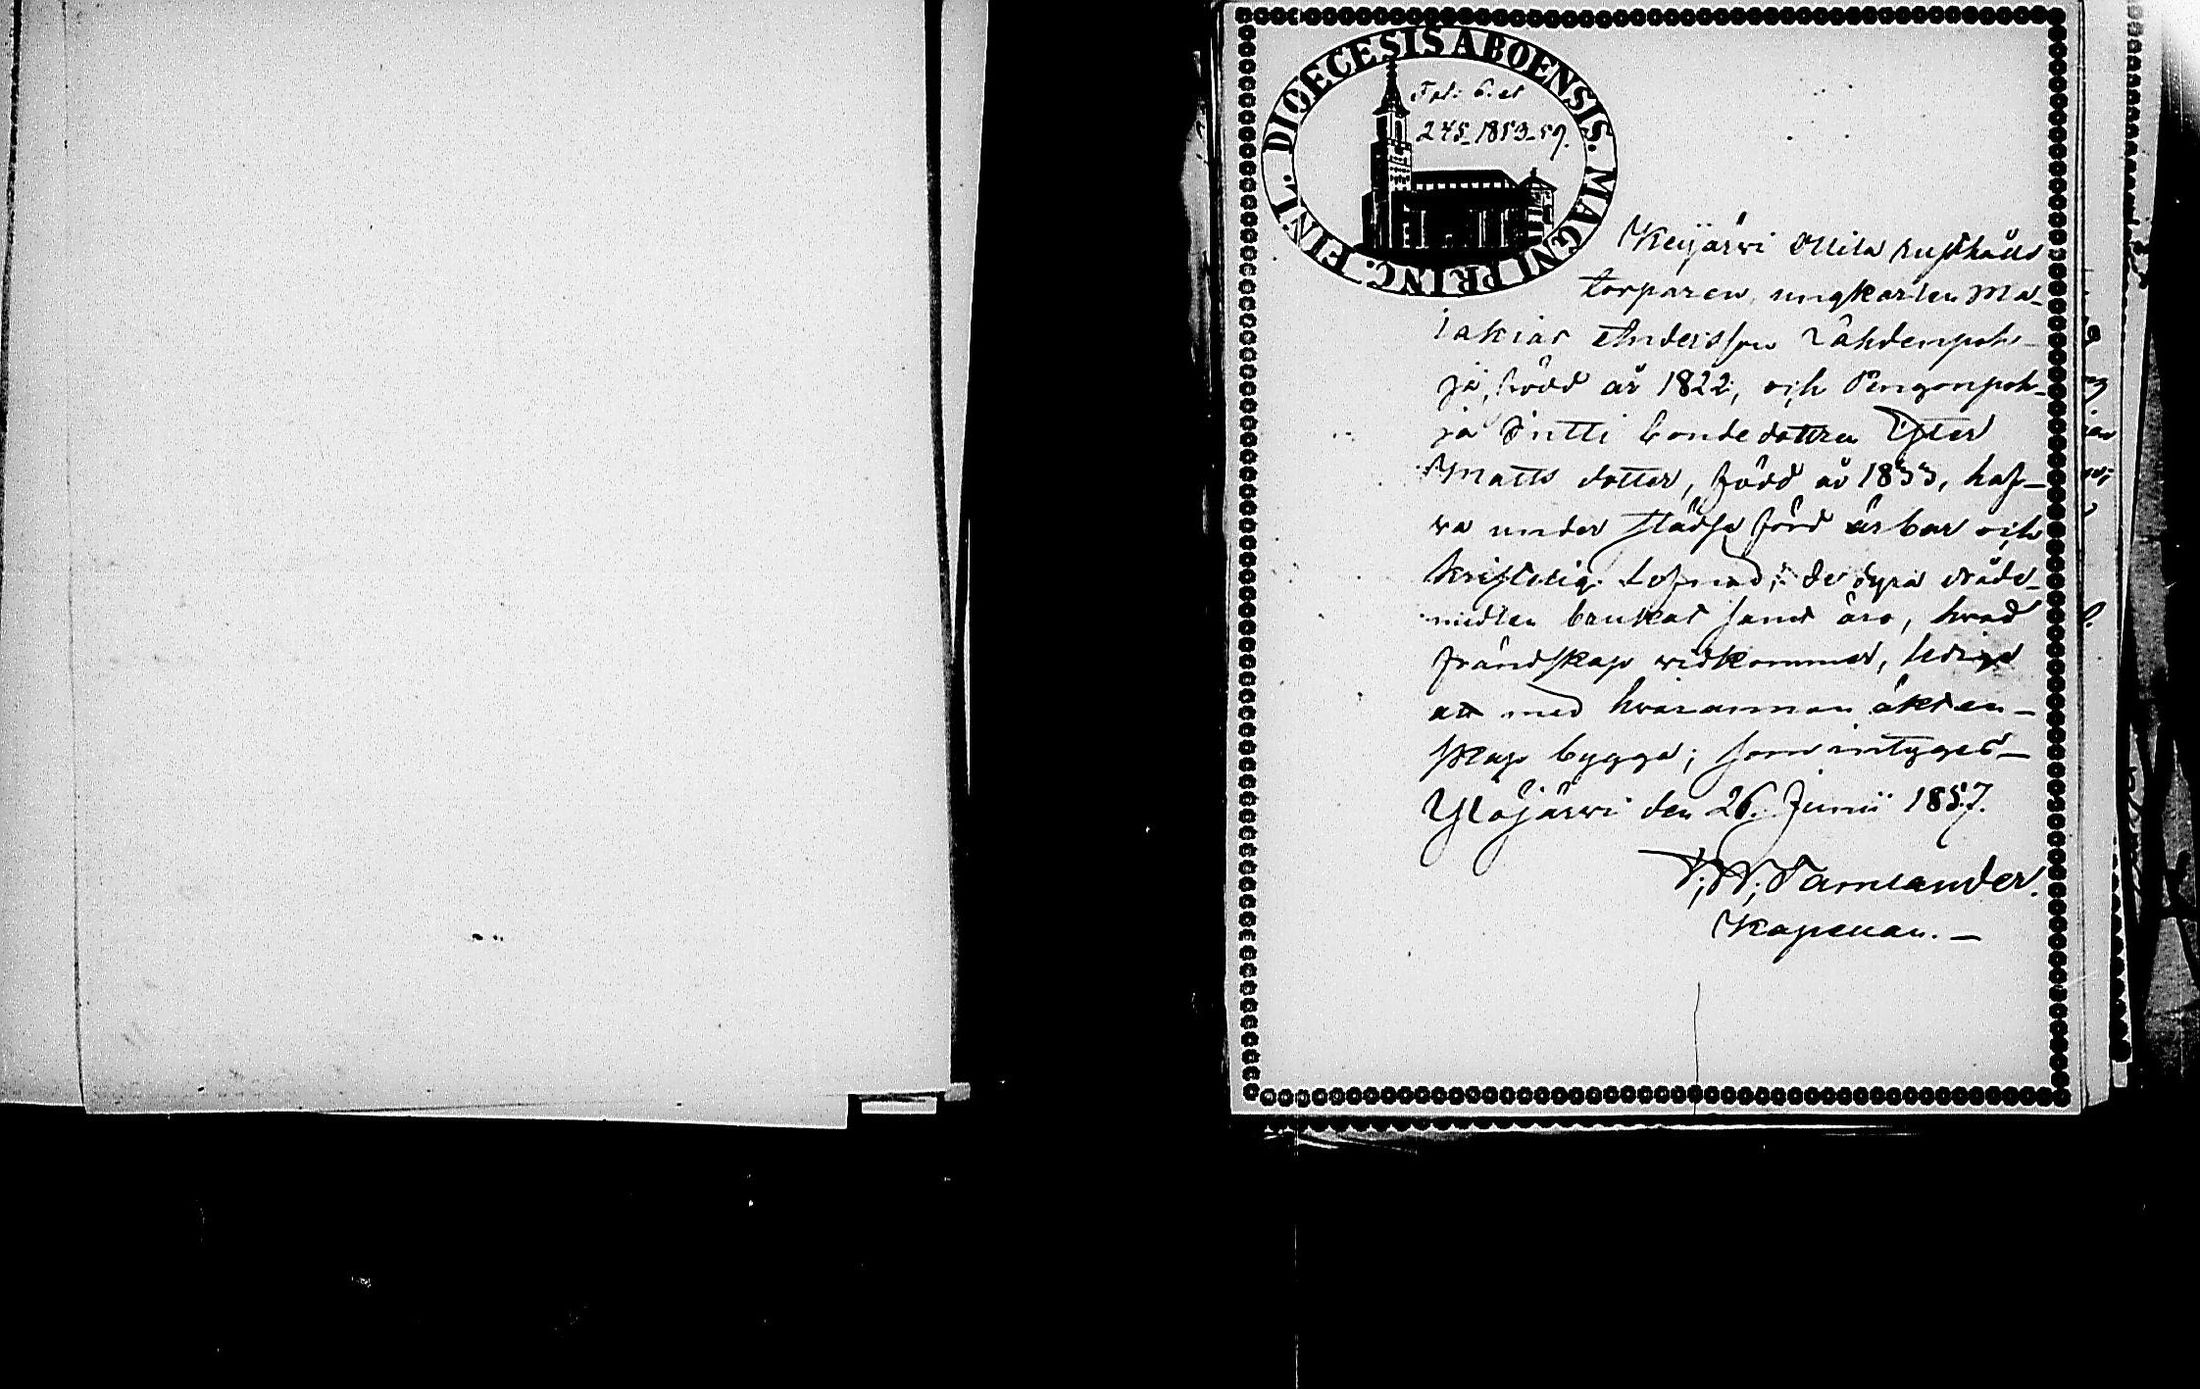 DIOECESIS ABOENSIS. MAGNI PRINC. FINL.
Fol: 6. et
245_1853-59.
Keijärvi Ollila rusthålls
torparen, ungkarlen Ma-
lakias Andersson Lähdenpoh-
ja, född år 1822, och Pengonpoh-
ja Antti bondedottren Ester
Matts dotter, född år 1833, haf-
va under städse förd ärbar och
kristelig lefnad, de dyra nåde-
medlen brukat samt äro, hvad
frändskap vidkommer, lediga
att med hvarannan äkten-
skap bygga; som intygas_
Ylöjärvi den 26. Junii 1857.
Tamlander.
Kapellan. _